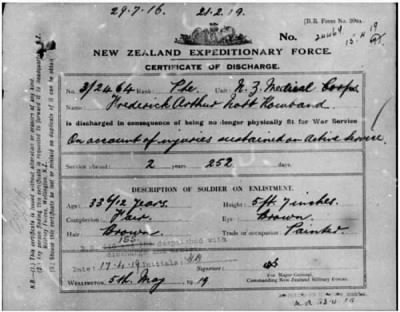 29-7-16. 21-2-19.
[D.R. Form No. 20
No. 20469
NEW ZEALAND EXPEDITIONARY FORCE.
CERTIFICATE OF DISCHARGE.
No. 3/2464 Rank: Pte Unit: N.Z. Medical Corps
Name: Frederick Arthur Howard
is discharged in consequence of being no longer physically fit for War Service
On account of injuries sustained on Active Service.
Service abroad: 2 years 252 days.
DESCRIPTION OF SOLDIER ON ENLISTMENT.
Age: 33 6/12 years. Height: 5 ft 7 inches.
Complexion: Fair Eye: Brown
Hair: Brown Trade or occupation: Painter
despatched with
discharge
Date: 17-4-19 Initials: Signature:
For Major-General,
Commanding New Zealand Military Forces.
WELLINGTON, 5th May 19
N.B.—(1). This certificate is issued without alteration or erasure of any kind.